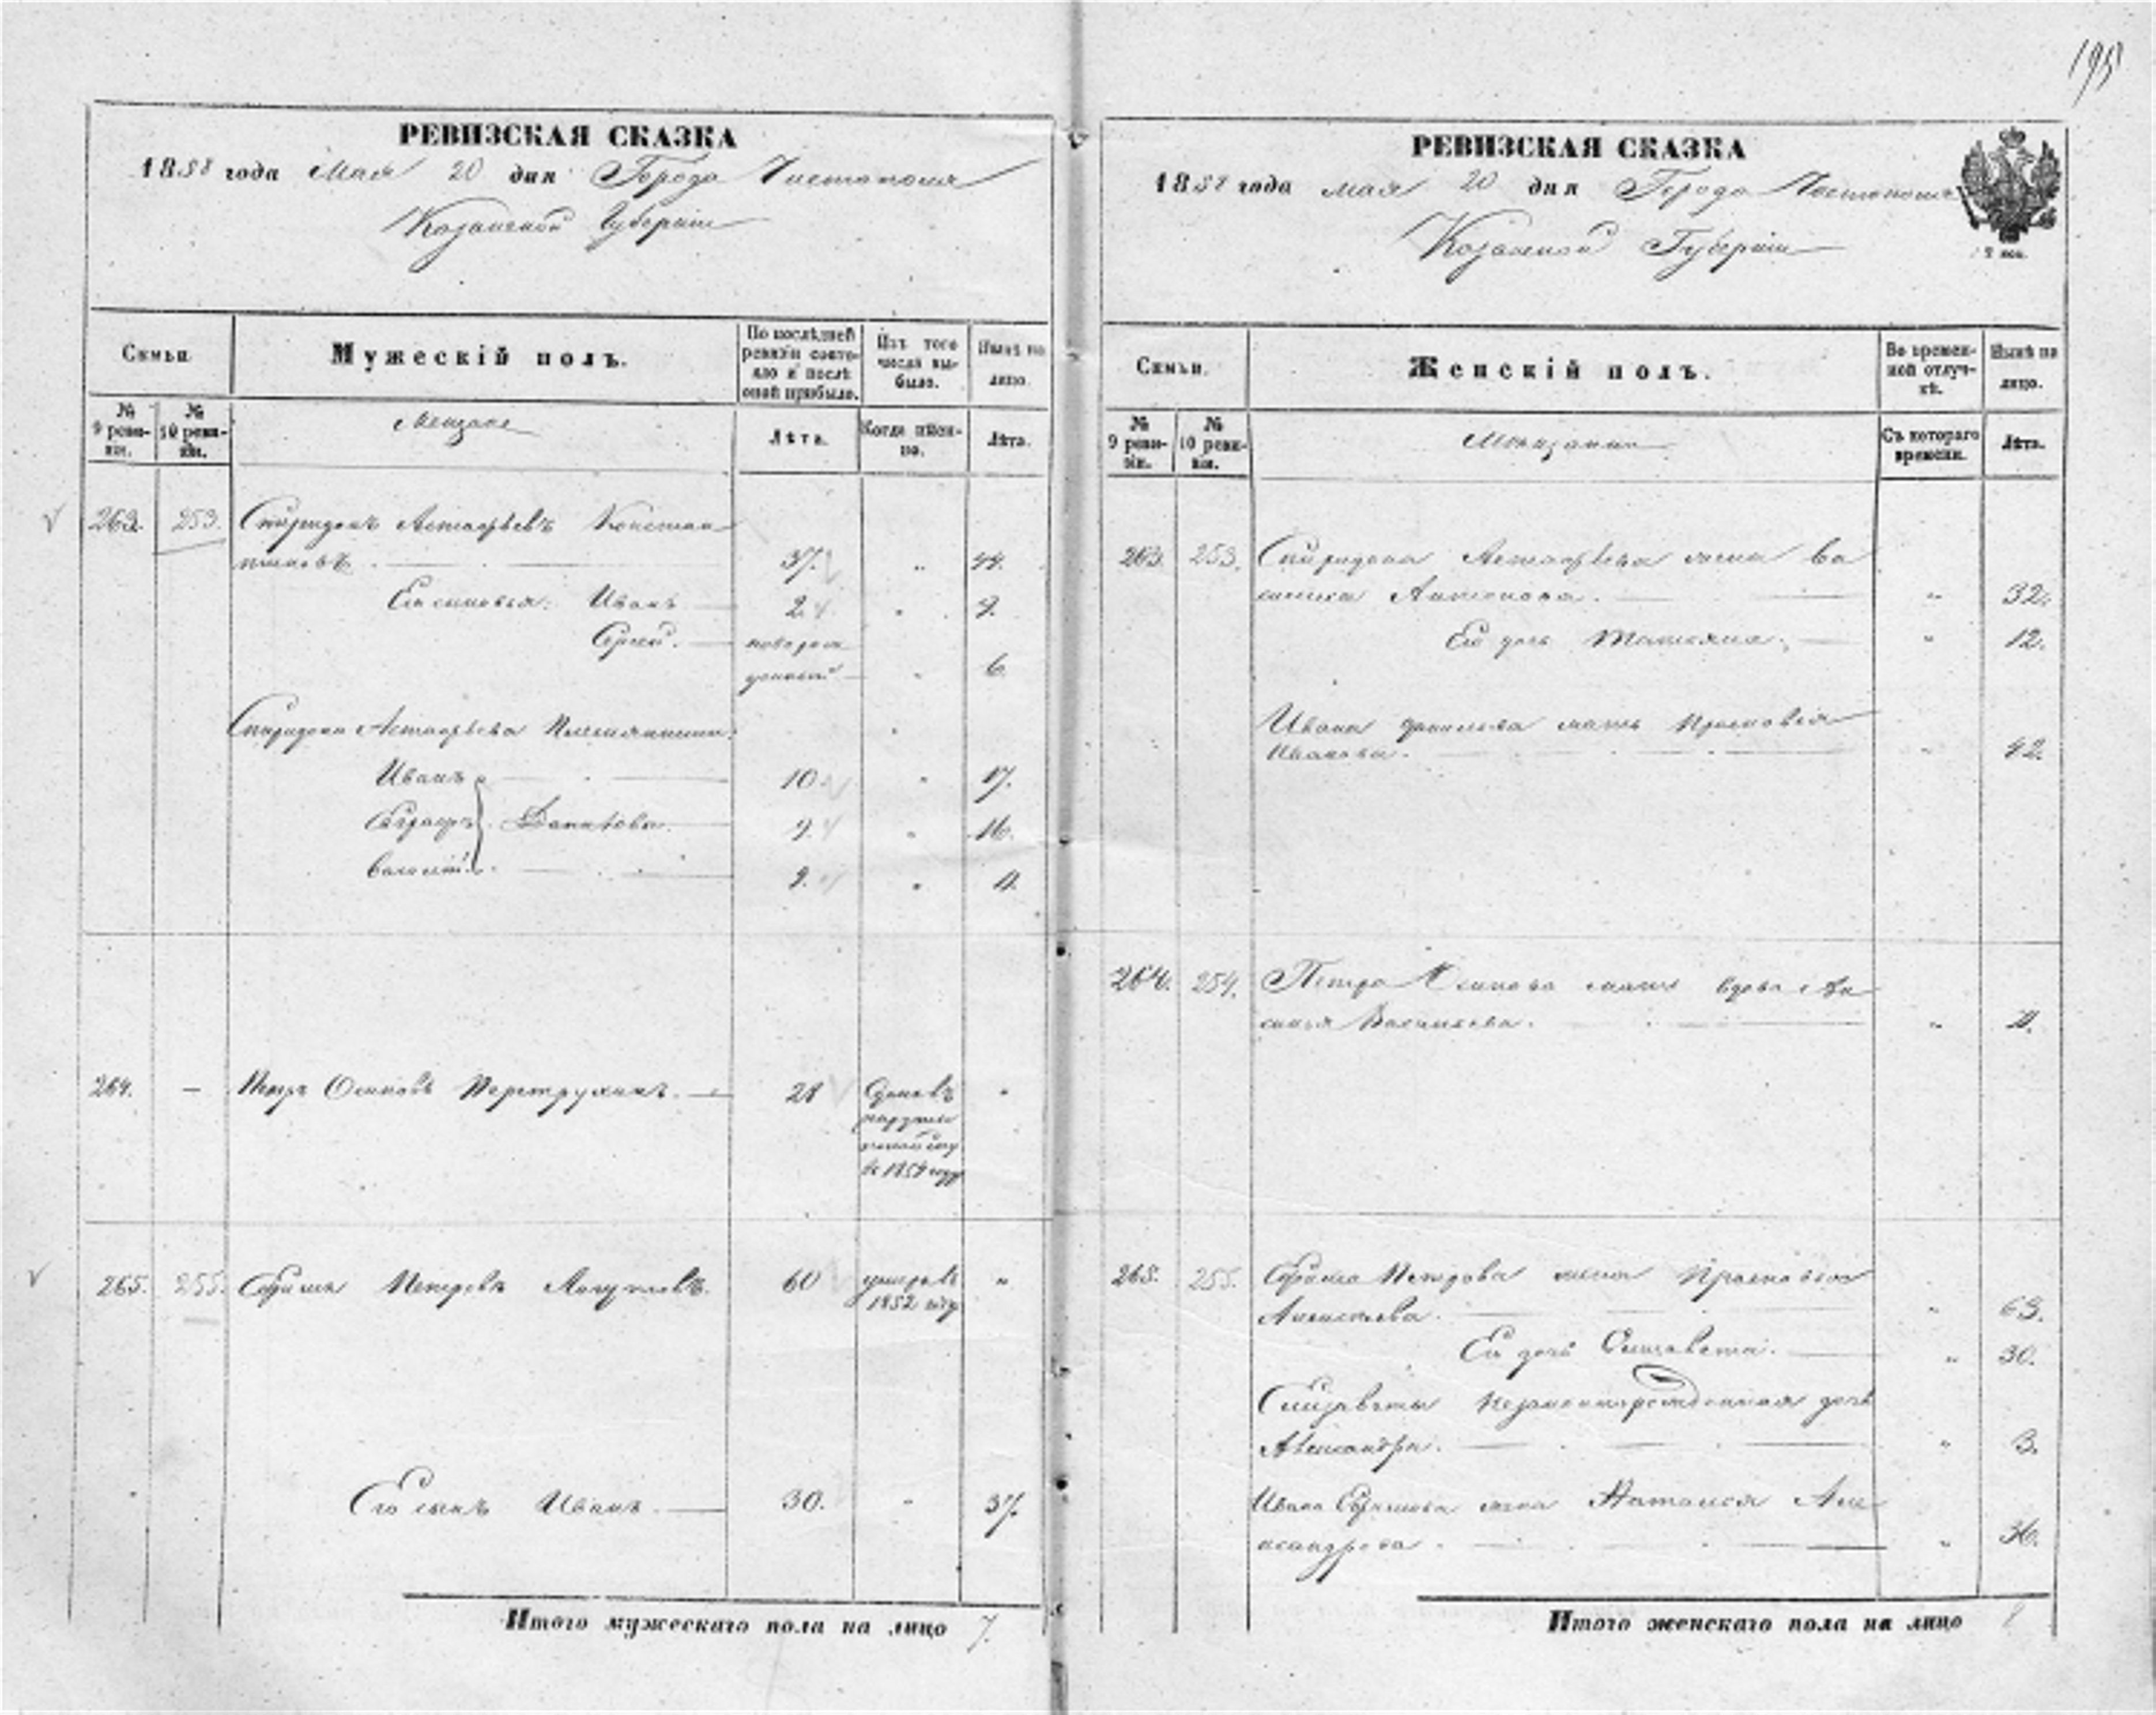 195
РЕВИЗСКАЯ СКАЗКА
1858 года Мая 20 дня Города Чистополя
Казанской Губернии
Семьи.
Мужескій полъ.
По послѣдней ревизіи состояло и послѣ оной прибыло.
Изъ того числа выбыло.
Нынѣ на лицо.
№ 9 ревизіи.
№ 10 ревизіи.
Мещане
Лѣта.
Когда именно.
Лѣта.
263. 253. Спиридонъ Астафьевъ Констан
тиновъ. 37. 44.
Его сыновья: Иванъ 2. 9.
Сергей. новорож
денный 6.
Спиридона Астафьева Племянники:
Иванъ 10 17.
Евграфъ Данилова. 9. 16.
Василій 11.
264. — Петръ Осиповъ 28
въ 1854 году
265. 255. Ефимъ Петровъ 60 умеръ въ
1852 году
Его сынъ Иванъ. 30. 37.
Итого мужескаго пола на лицо 7.
РЕВИЗСКАЯ СКАЗКА
1858 года мая 20 дня Города Чистополя
Казанской Губернии
Семьи.
Женскій полъ.
Во временной отлучкѣ.
Нынѣ на лицо.
№ 9 ревизіи.
№ 10 ревизіи.
Мещанки
Съ котораго времени.
Лѣта.
263. 253. Спиридона Астафьева жена Ва
силиса Антонова. 32.
Его дочь Татьяна. 12.
Ивана Данилова мать Прасковья
Иванова. 42.
264. 254. Петра Осипова мать вдова Ак
синья Васильева.
265. 255. Ефима Петрова жена Прасковья
Алексеева. 63.
Его дочь Елизавета. 30.
Елизаветы незаконнорожденная дочь
Александра. 3.
Ивана Ефимова жена Наталья Але
ксандрова. 36.
Итого женскаго пола на лицо